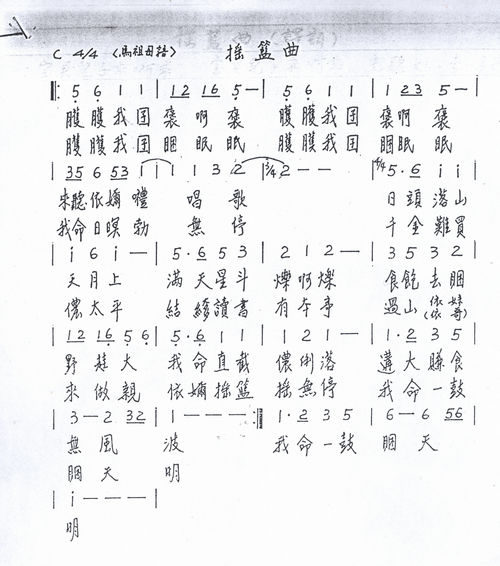 C 4/4 〈馬祖母語〉 搖籃曲
5 6 1 1 | 12 16 5 — | 5 6 1 1 | 1 23 5 — |
腰腰我囝 褒啊褒 腰腰我囝 褒啊褒
腰腰我囝 睏眠眠 腰腰我囝 睏眠眠
| 35 6 53 1 | 1 1 3 2 | 5/4 2 — — | 4/4 5 · 6 i i |
來聽依嬭 禮 唱歌 日頭落山
我命日暝 勃 無停 千金難買
| i 6 i — | 5 · 6 5 3 | 2 1 2 — | 3 5 3 2 |
天月上 滿天星斗 爍啊爍 食飽去睏
儂太平 結 讀書 有本事 過山
| 12 16 5 6 | 5 · 6 1 1 | 1 2 1 — | 1 · 2 3 5 |
野 大 我命直截 儂俐落 大賺食
來做親 依嬭搖籃 搖無停 我命一鼓
| 3 — 2 32 | 1 — — — | 1 · 2 3 5 | 6 — 6 56 |
無風 波 我命一鼓 睏天
睏天 明
| i — — — |
明